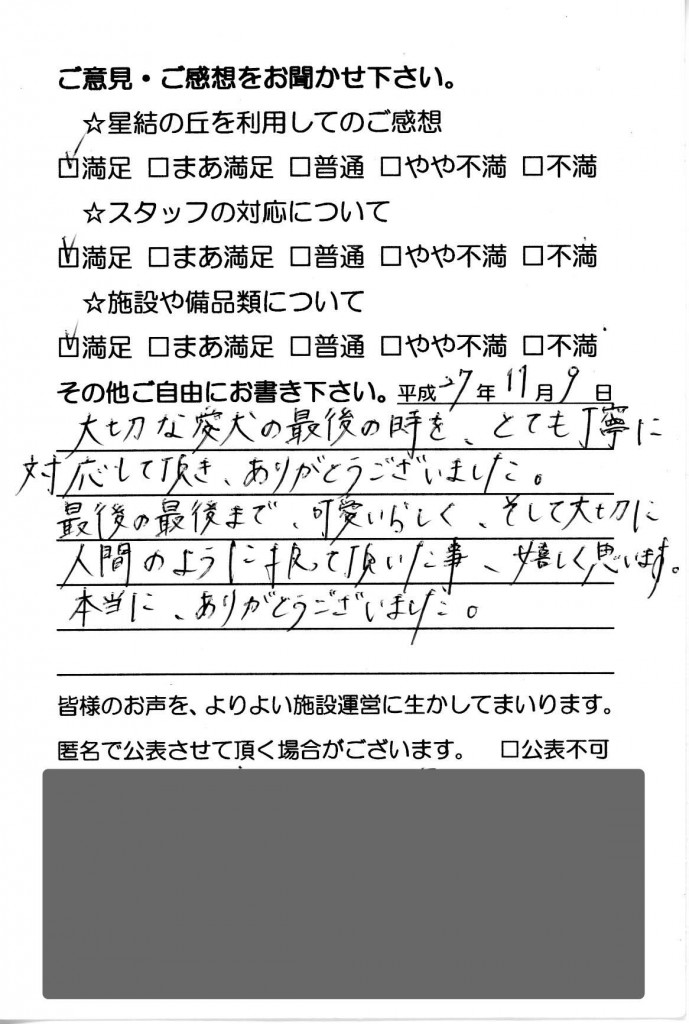 ご意見・ご感想をお聞かせ下さい。
☆星結の丘を利用してのご感想
☑満足 □まあ満足 □普通 □やや不満 □不満
☆スタッフの対応について
☑満足 □まあ満足 □普通 □やや不満 □不満
☆施設や備品類について
☑満足 □まあ満足 □普通 □やや不満 □不満
その他ご自由にお書き下さい。平成27年11月9日
大切な愛犬の最後の時を、とても丁寧に
対応して頂き、ありがとうございました。
最後の最後まで、可愛いらしく、そして大切に
人間のように扱って頂いた事、嬉しく思います。
本当に、ありがとうございました。
皆様のお声を、よりよい施設運営に生かしてまいります。
匿名で公表させて頂く場合がございます。 □公表不可